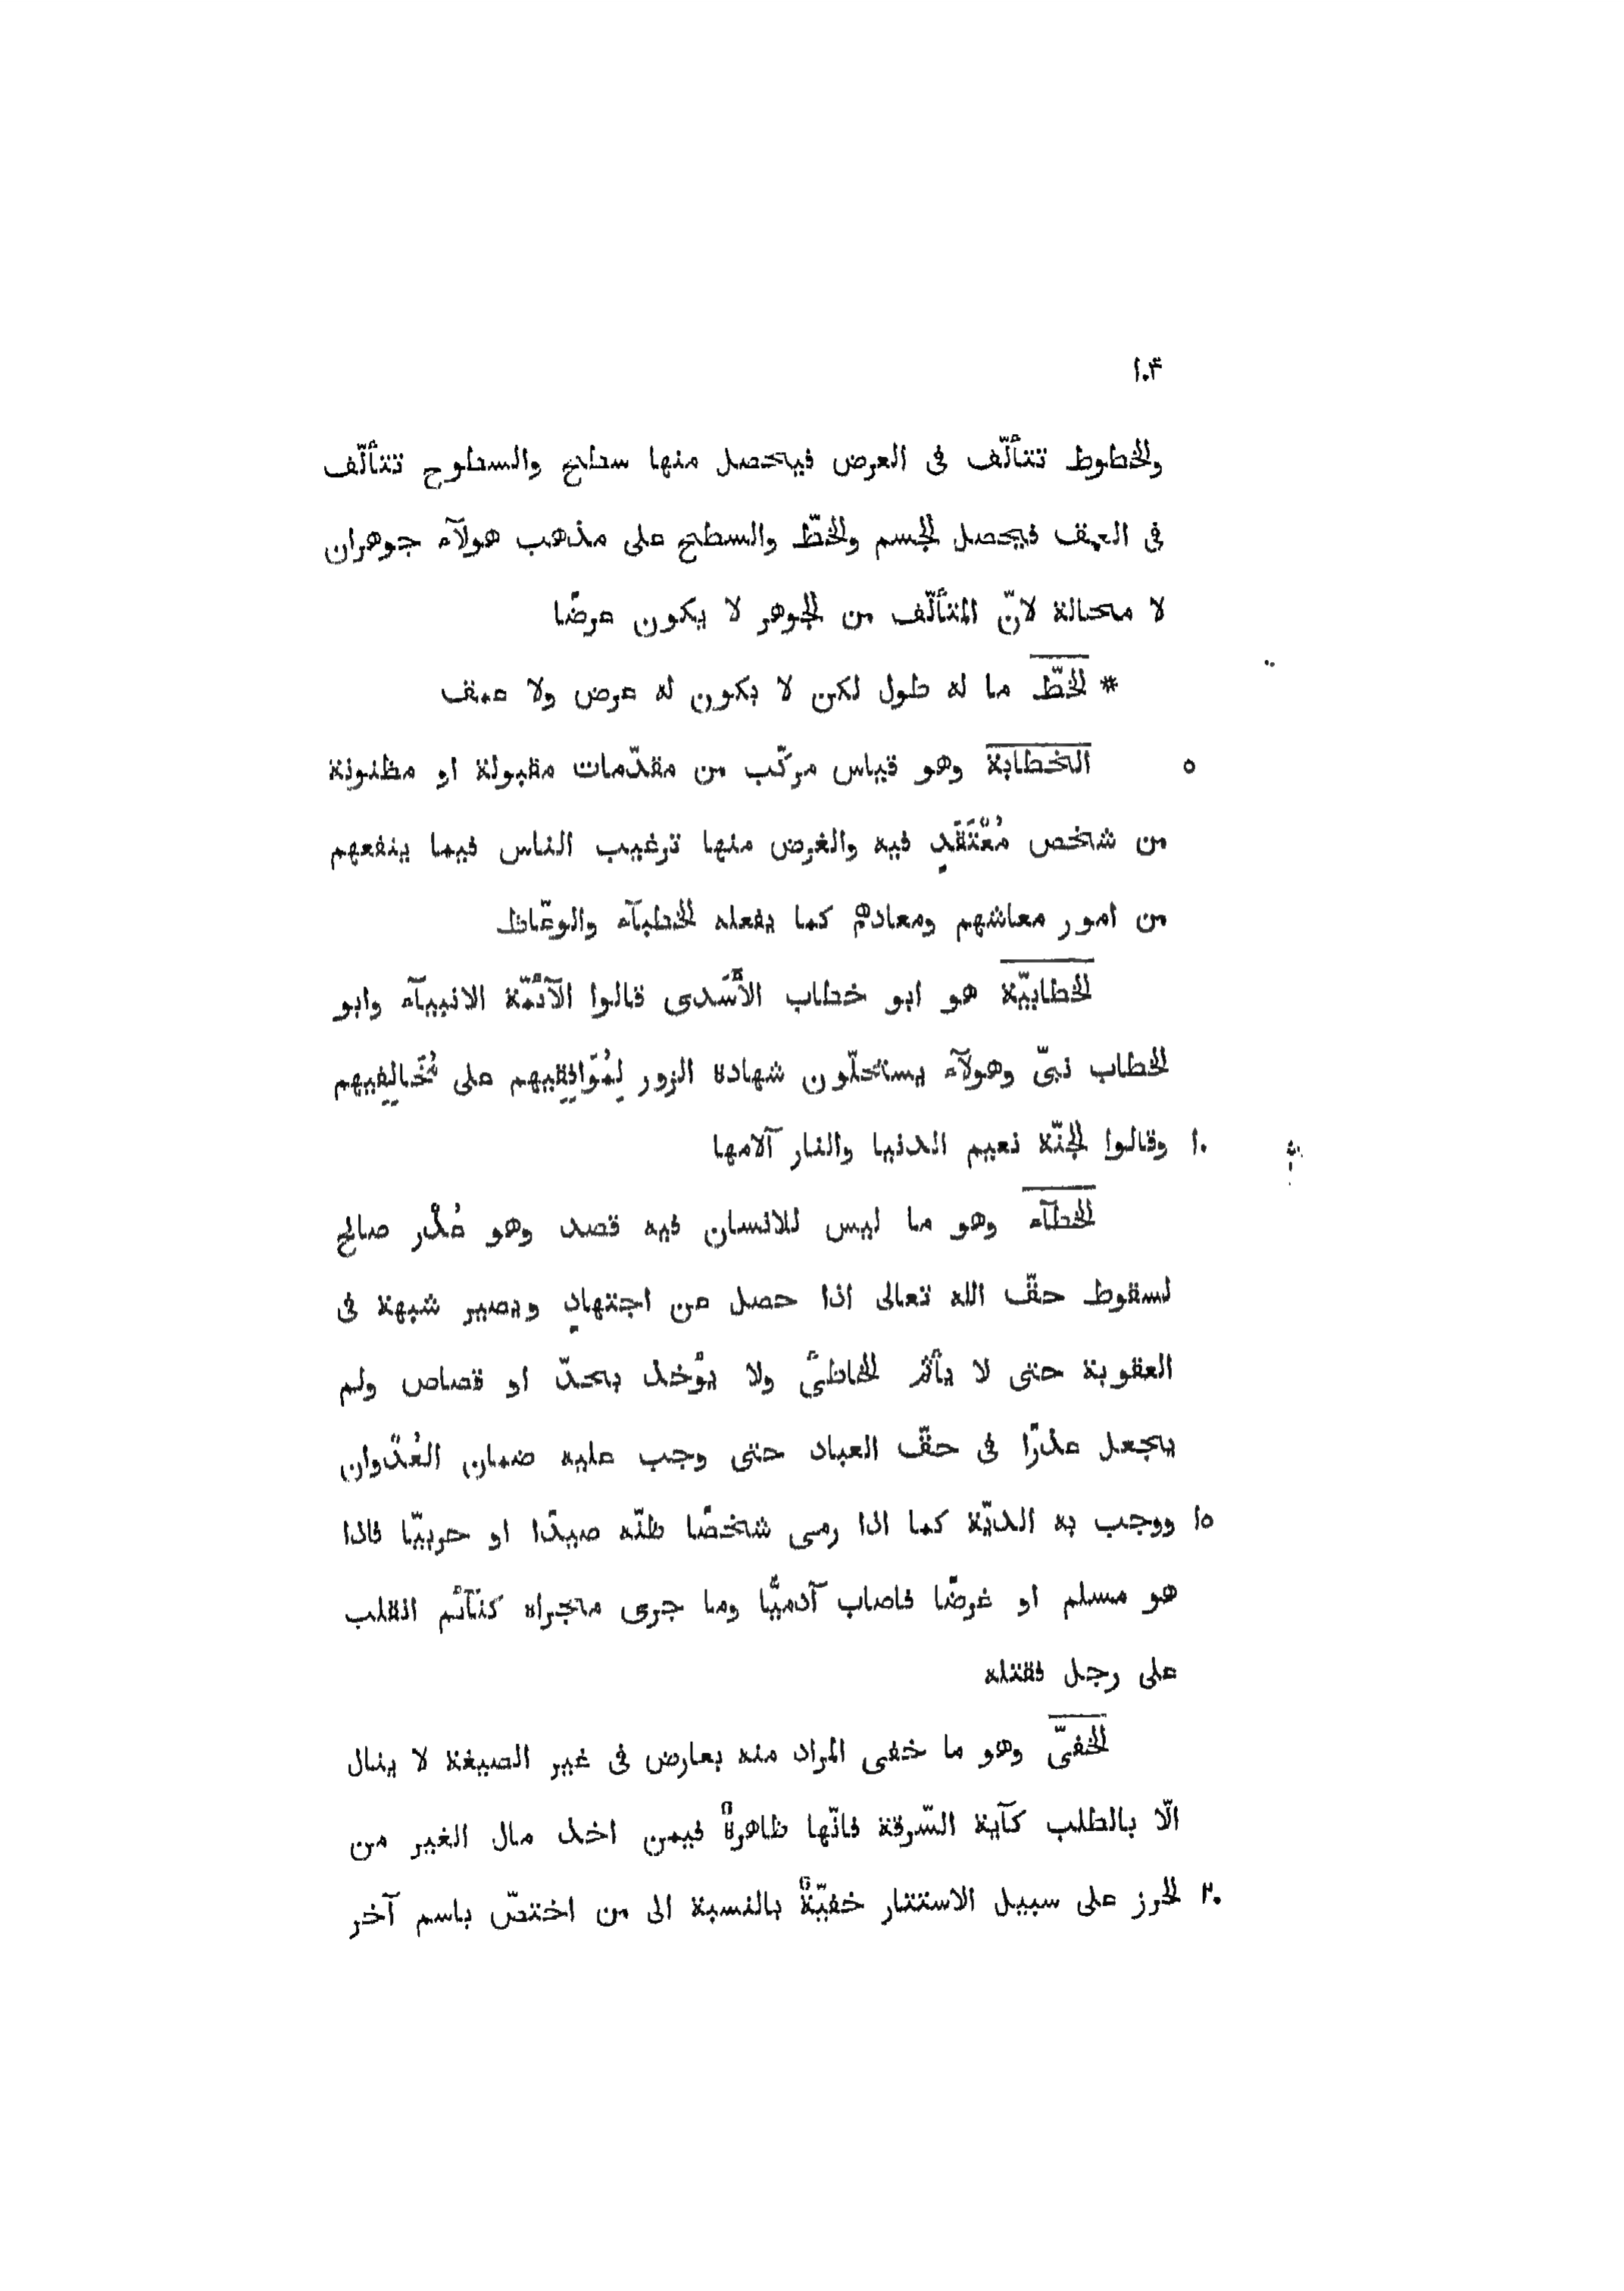 ١٠۴
والخطوط تتألّف فى العرض فيحصل منها سطح والسطوح تتألّف
فى العمق فيحصل الجسم والخطّ والسطح على مذهب هولآء جوهران
لا محالة لانّ المتألّف من الجوهر لا يكون عرضًا
* الخطّ ما له طول لكن لا يكون له عرض ولا عمق
٥ الخطابة وهو قياس مركّب من مقدّمات مقبولة او مظنونة
من شخص مُعْتَقَدٍ فيه والغرض منها ترغيب الناس فيما ينفعهم
من امور معاشهم ومعادهم كما يفعله الخطبآء والوعّاظ
الخطابيّة هو ابو خطاب الأَسَدى قالوا الآئمّة الانبيآء وابو
الخطاب نبىّ وهولآء يستحلّون شهادة الزور لِمُوَافِقِيهم على مُخَالِفِيهم
١٠ وقالوا الجنّة نعيم الدنيا والنار آلامها
الخطآء وهو ما ليس للانسان فيه قصد وهو عُذْر صالح
لسقوط حقّ الله تعالى اذا حصل عن اجتهادٍ ويصير شبهة فى
العقوبة حتى لا يأثم الخاطئ ولا يؤخذ بحدّ او قصاص ولم
يجعل عذرًا فى حقّ العباد حتى وجب عليه ضمان العُدْوان
١٥ ووجب به الديّة كما اذا رمى شخصًا ظنّه صيدًا او حربيّا فاذا
هو مسلم او غرضًا فاصاب آدميًّا وما جرى مجراه كنَآئم انقلب
على رجل فقتله
الخفىّ وهو ما خفى المراد منه بعارض فى غير الصيغة لا ينال
الّا بالطلب كآية السّرقة فانّها ظاهرةٌ فيمن اخذ مال الغير من
٢٠ الحرز على سبيل الاستتار خفيّةٌ بالنسبة الى من اختصّ باسم آخر